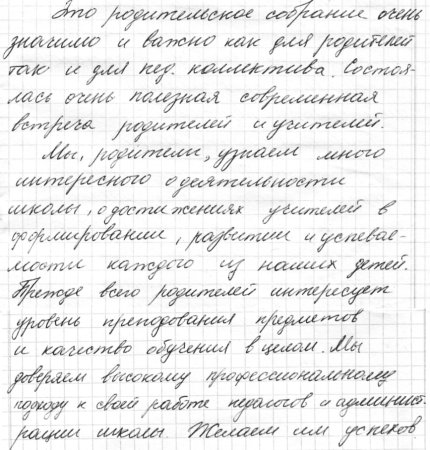 Это родительское собрание очень
значимо и важно как для родителей
так и для пед. коллектива. Состоя-
лась очень полезная современная
встреча родителей и учителей.
Мы, родители, узнаем много
интересного о деятельности
школы, о достижениях учителей в
формировании, развитии и успевае-
мости каждого из наших детей.
Прежде всего родителей интересует
уровень преподования предметов
и качество обучения в целом. Мы
доверяем высокому профессиональному
подходу к своей работе педагогов и админист-
рации школы. Желаем им успехов